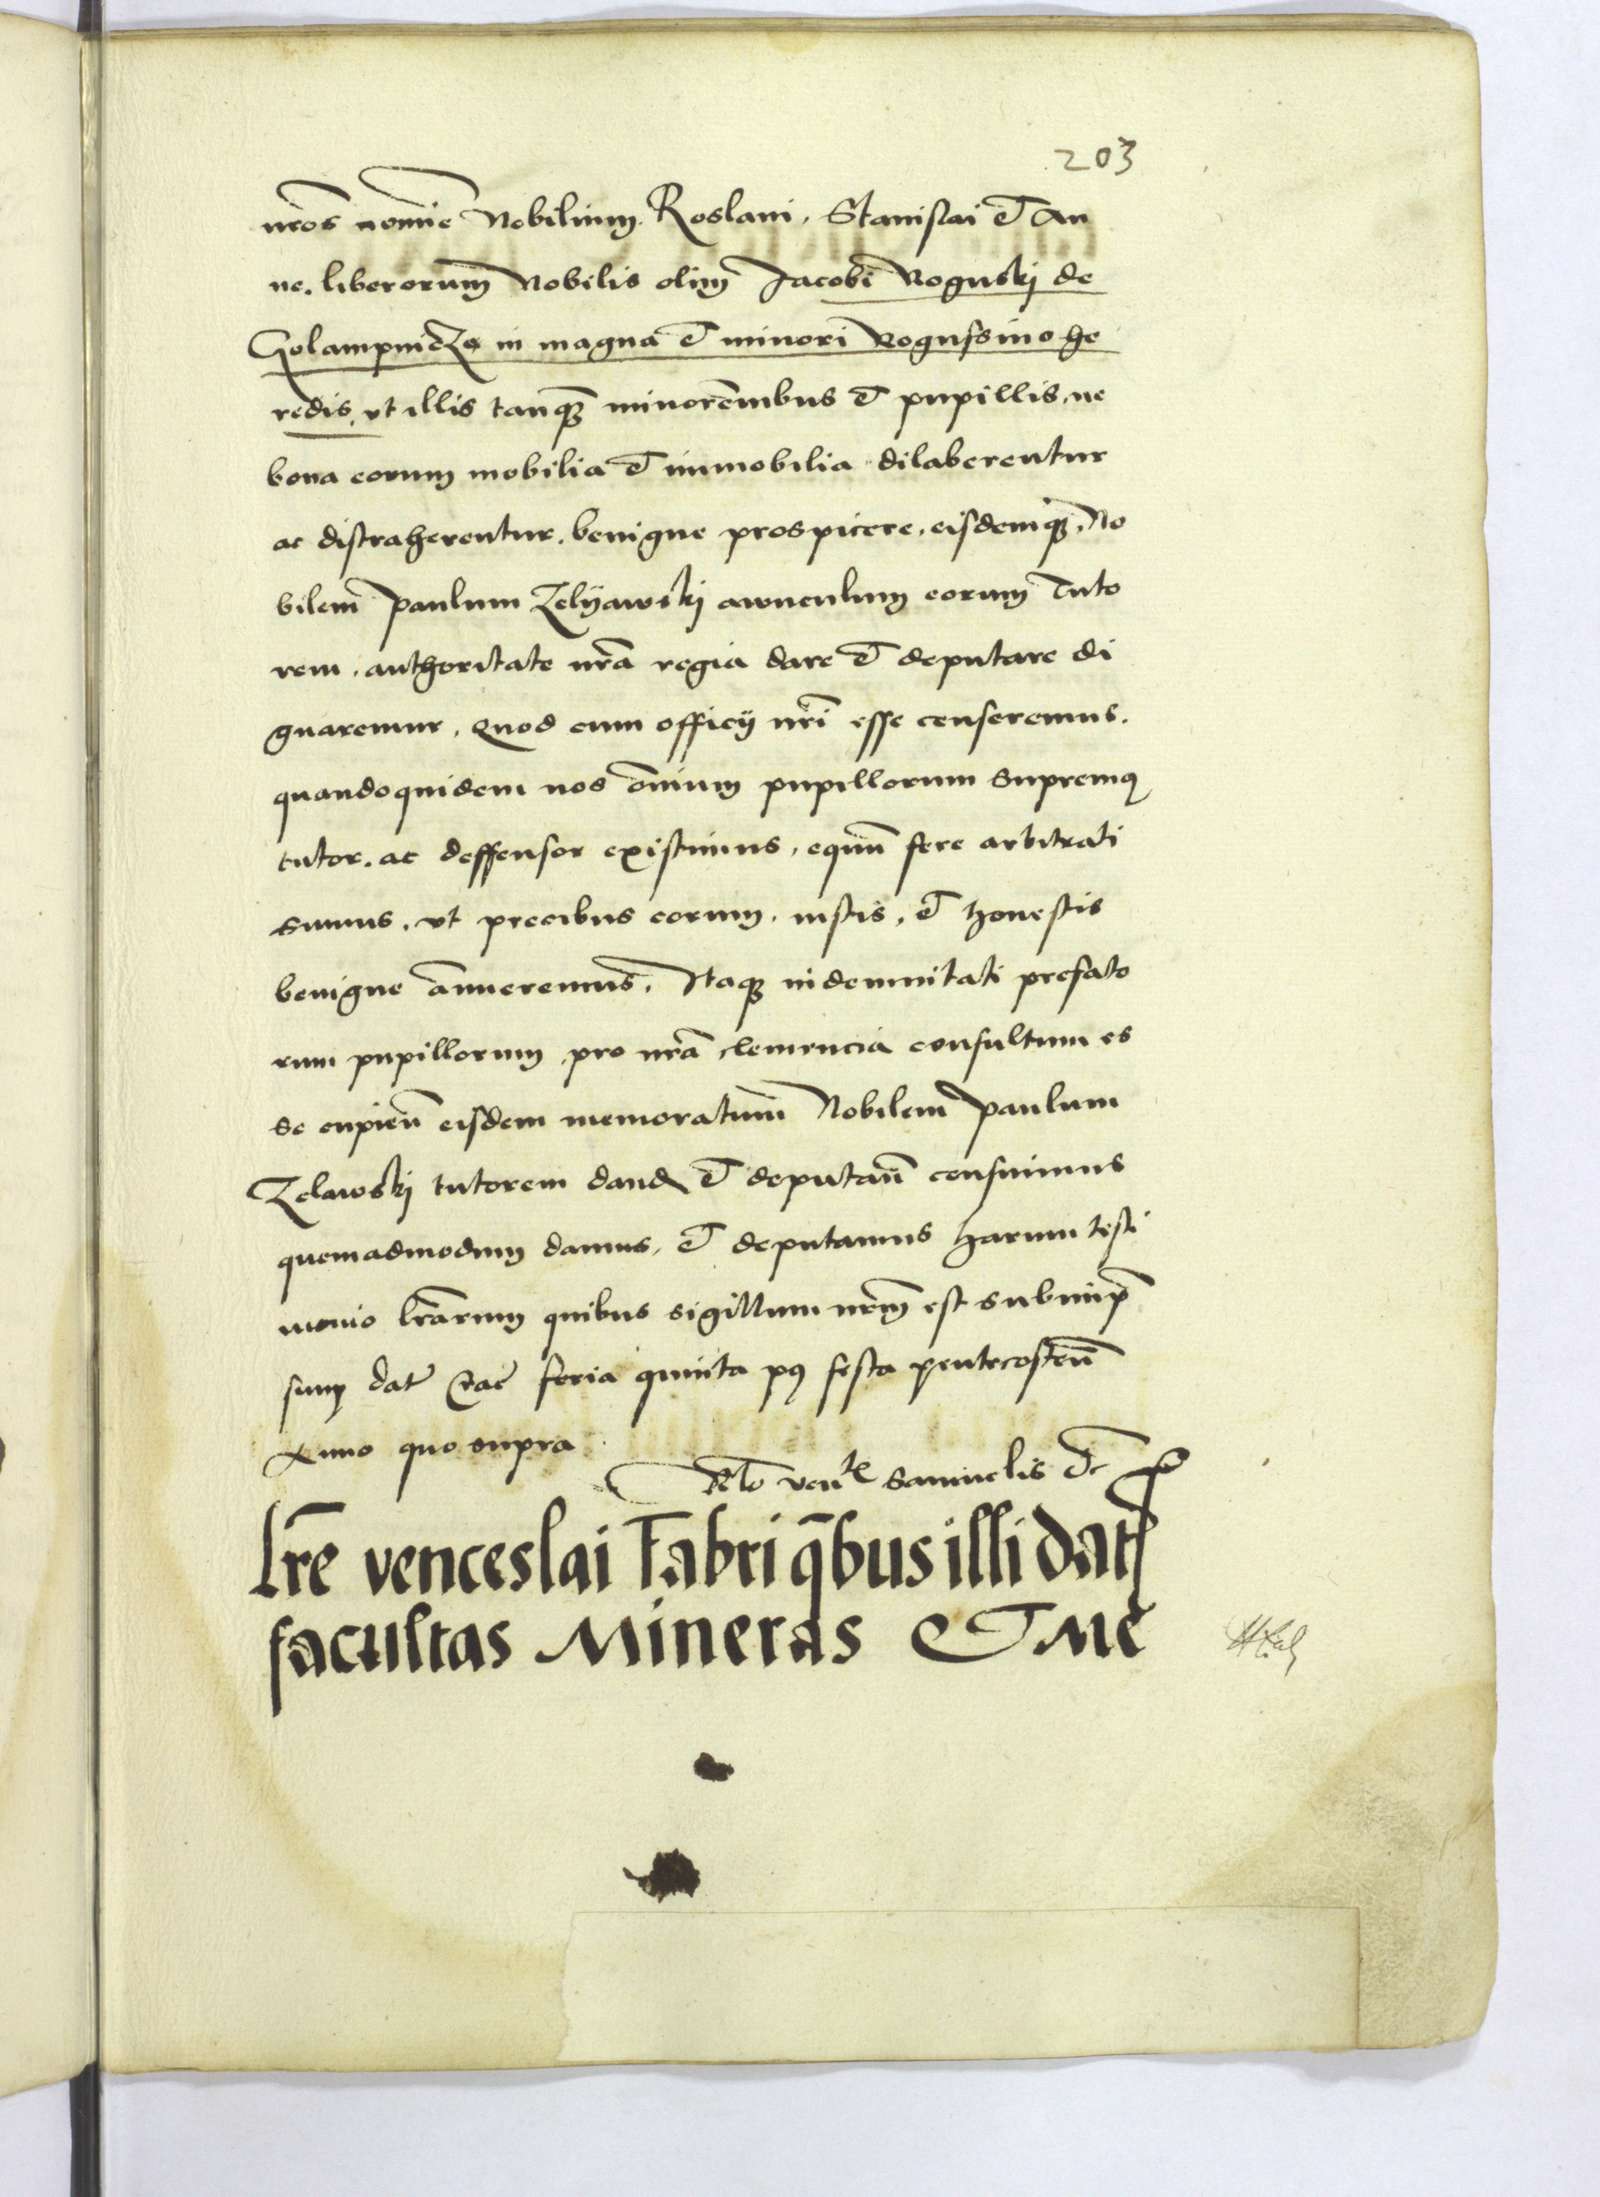 203
nr̃os nomĩe Nobilium Roslani, Stanislai et An
ne, liberorum Nobilis olim Jacobi Roguski de
Golampnicze in magna et minori Rogussino he
redis, vt illis tanq̃ minorẽnibus et pupillis, ne
bona eorum mobilia et immobilia dilaberentur
ac distraherentur, benigne prospicere, eisdemq̃, No
bilem Paulum Zelyawskj awunculum eorum Tuto
rem, authoritate nr̃a regia dare et deputare di
gnaremur, Quod cum officij nr̃i esse censeremus,
quandoquidem nos om̃ium pupillorum supremus
tutor, ac deffensor existimus, equum fere arbitrati
sumus, vt precibus eorum, iustis, et honestis
benigne anueremus, Itaq̃ indemnitati prefato
rum pupillorum pro nr̃a clemencia consultum es
se cupien̄ eisdem memoratum Nobilem Paulum
Zelawskj tutorem dand et deputan̄ censuimus
quemadmodum damus, et deputamus harum testi
monio lr̃arum quibus sigillum nr̃m est subimp̃
sum dat̃ Crac̃ feria quinta p9 festa pentecosten̄
Anno quo supra
Rel̃o ven^le Samuelis etc
Lr̃e venceslai Fabri q̃bus illi dat
facultas Mineras ET Me